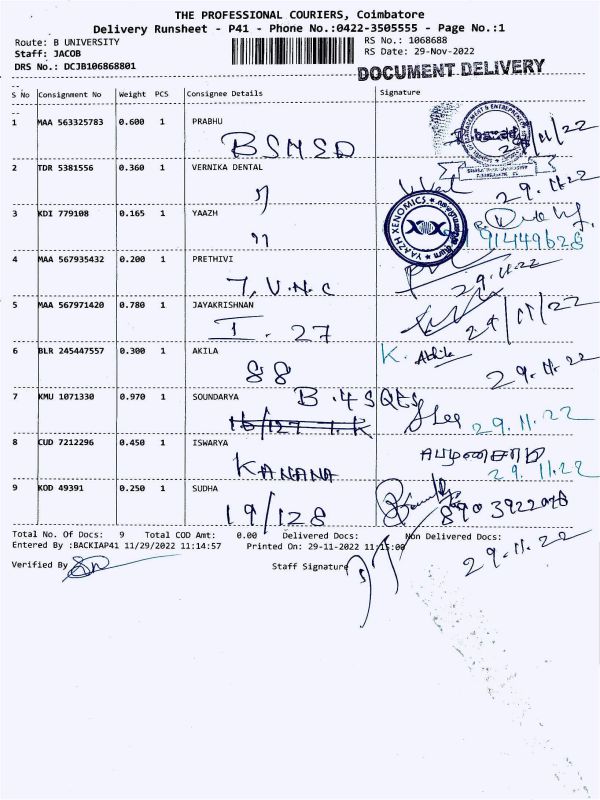 THE PROFESSIONAL COURIERS, Coimbatore
Delivery Runsheet - P41 - Phone No.:0422-3505555 - Page No.:1
Route: B UNIVERSITY
RS No.: 1068688
Staff: JACOB
RS Date: 29-Nov-2022
DRS No.: DCJB106868801
DOCUMENT DELIVERY
S No Consignment No Weight PCS Consignee Details Signature
1 MAA 563325783 0.600 1 PRABHU
BSMED
2 TDR 5381556 0.360 1 VERNIKA DENTAL
29.11.22
3 KDI 779108 0.165 1 YAAZH
YAAZH XENOMICS
4 MAA 567935432 0.200 1 PRETHIVI
29.11.22
5 MAA 567971420 0.780 1 JAYAKRISHNAN
I. 27
29/11/22
6 BLR 245447557 0.300 1 AKILA
88
K.
29.11.22
7 KMU 1071330 0.970 1 SOUNDARYA
B.4 SQES
29.11.22
8 CUD 7212296 0.450 1 ISWARYA
KANANA
29.11.22
9 KOD 49391 0.250 1 SUDHA
19/128
8903922048
Total No. Of Docs: 9 Total COD Amt: 0.00 Delivered Docs: Non Delivered Docs:
Entered By :BACKIAP41 11/29/2022 11:14:57 Printed On: 29-11-2022 11:15:00
29.11.22
Verified By
Staff Signature